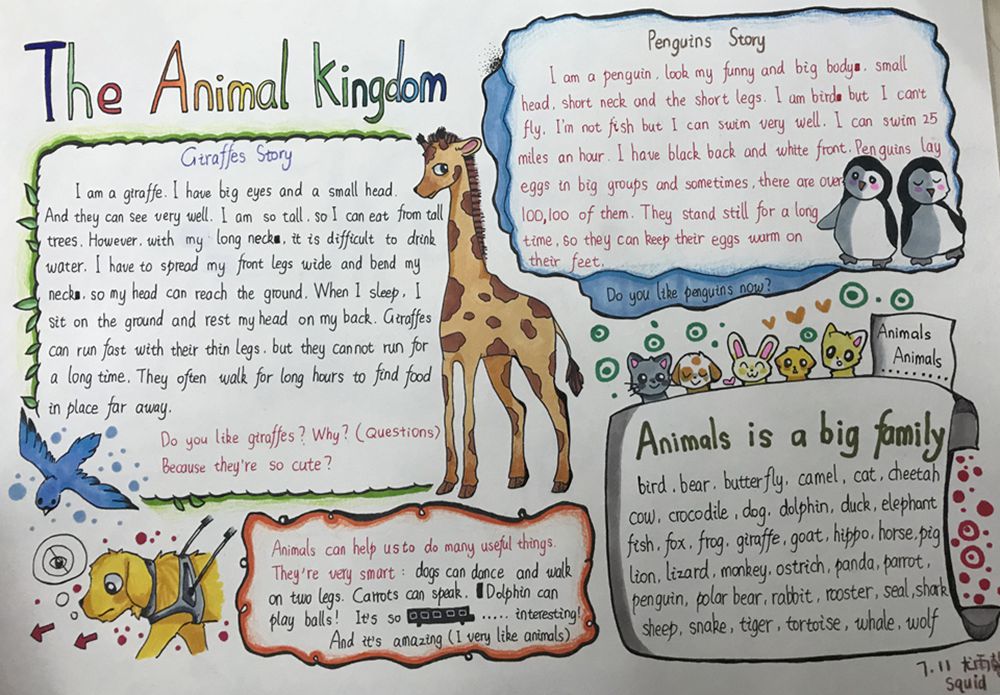 The Animal Kingdom
Giraffes Story
I am a giraffe. I have big eyes and a small head.
And they can see very well. I am so tall, so I can eat from tall
trees. However, with my long neck, it is difficult to drink
water. I have to spread my front legs wide and bend my
neck, so my head can reach the ground. When I sleep, I
sit on the ground and rest my head on my back. Giraffes
can run fast with their thin legs, but they cannot run for
a long time. They often walk for long hours to find food
in place far away.
Do you like giraffes? Why? (Questions)
Because they're so cute?
Penguins Story
I am a penguin, look my funny and big body, small
head, short neck and the short legs. I am bird but I can't
fly, I'm not fish but I can swim very well. I can swim 25
miles an hour. I have black back and white front. Penguins lay
eggs in big groups and sometimes, there are over
100,100 of them. They stand still for a long
time, so they can keep their eggs warm on
their feet.
Do you like penguins now?
Animals
Animals
Animals is a big family
bird, bear, butterfly, camel, cat, cheetah
cow, crocodile, dog, dolphin, duck, elephant
fish, fox, frog, giraffe, goat, hippo, horse, pig
lion, lizard, monkey, ostrich, panda, parrot,
penguin, polar bear, rabbit, rooster, seal, shark
sheep, snake, tiger, tortoise, whale, wolf
Animals can help us to do many useful things.
They're very smart: dogs can dance and walk
on two legs. Carrots can speak. Dolphin can
play balls! It's so ..... interesting!
And it's amazing (I very like animals)
7.11 尤雨
Squid